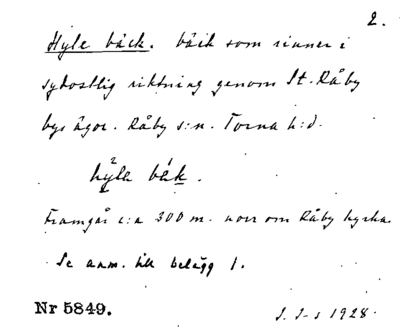 2.
Hyle bäck. bäck som rinner i
sydostlig riktning genom St. Råby
bys ägor. Råby s:n. Torna h:d.
hyla bäk.
Framgår c:a 300 m. norr om Råby kyrka
Se anm. till belägg 1.
Nr 5849.
1928.